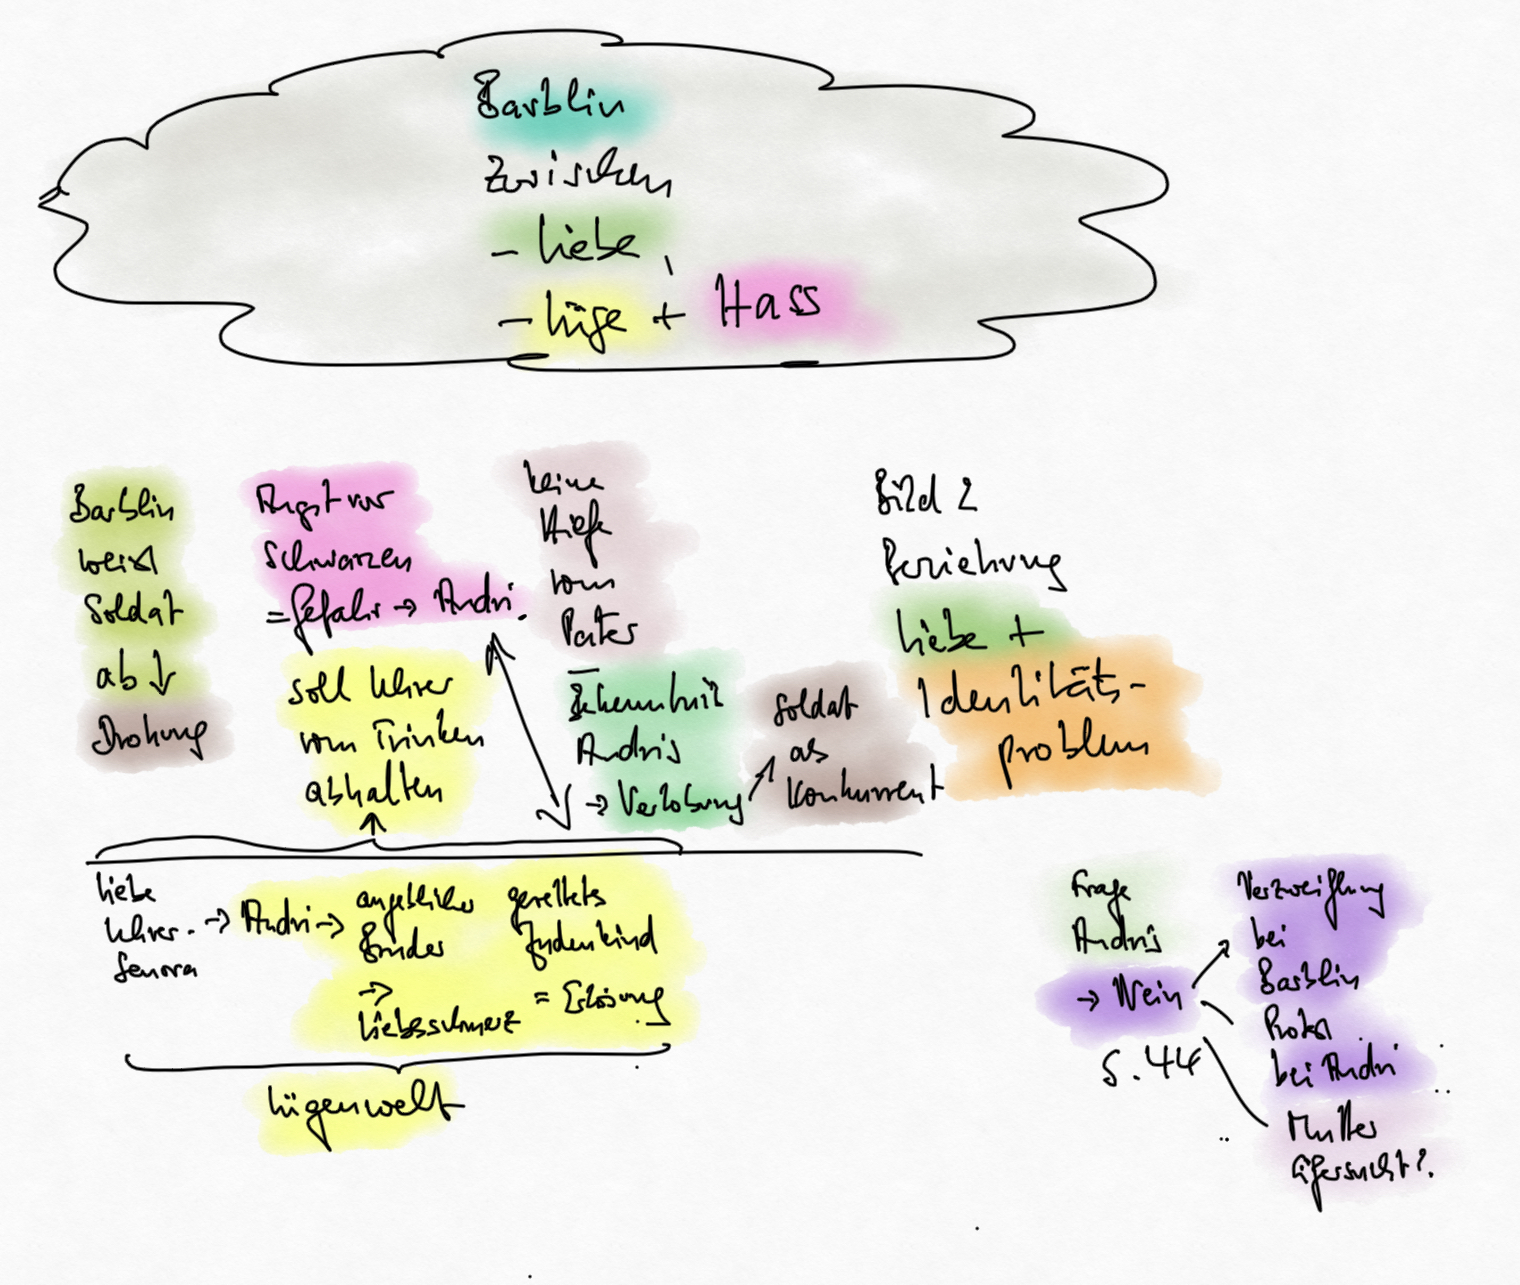 Barblin
zwischen
- Liebe,
- Lüge + Hass
Barblin
weist
Soldat
ab ↓
Drohung
Angst vor
Schwarzen
= Gefahr → Andri
soll Lehrer
vom Trinken
abhalten
keine
Hilfe
vom
Pater
Bekenntnis
Andris
→ Verlobung
Soldat
als
Konkurrent
Bild 2
Beziehung
Liebe +
Identitäts-
problem
Liebe
Lehrer -
Senora
→ Andri →
angeblicher
Bruder
→
Liebesschmerz
gerettetes
Judenkind
= Erlösung
Lügenwelt
Frage
Andris
→ Nein
S. 44
Verzweiflung
bei
Barblin
Protest
bei Andri
Mutter
Eifersucht?